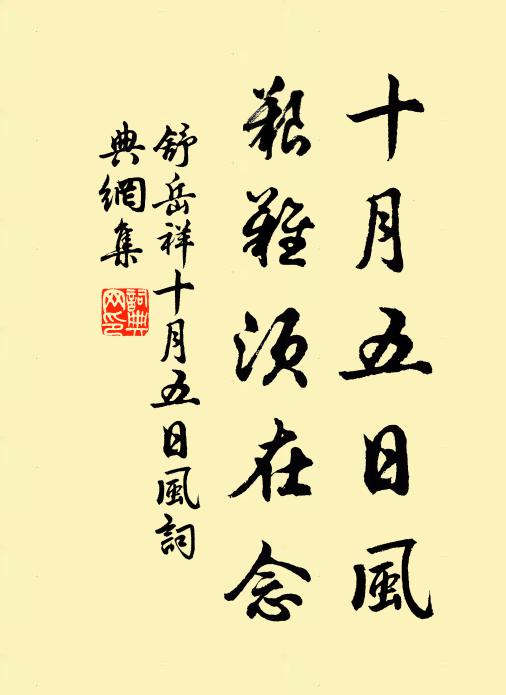 十月五日風
艱難須在念
舒岳祥十月五日風詞
典網集
詞典網印